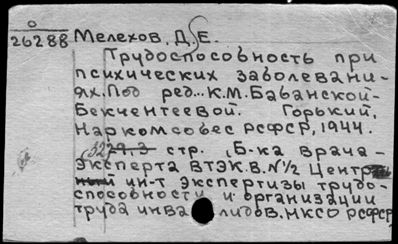 О
26288 Мелехов, Д.Е.
Трудоспособность при
психических заболевани-
ях. Под ред. К.М. Бабанской-
Бекчентеевой. Горький,
Наркомсобес РСФСР, 1944.
32 стр. (Б-ка врача-
эксперта ВТЭК. В. №1/2 Центр
ин-т экспертизы трудо-
способности и организации
труда инвалидов. НКСО РСФСР